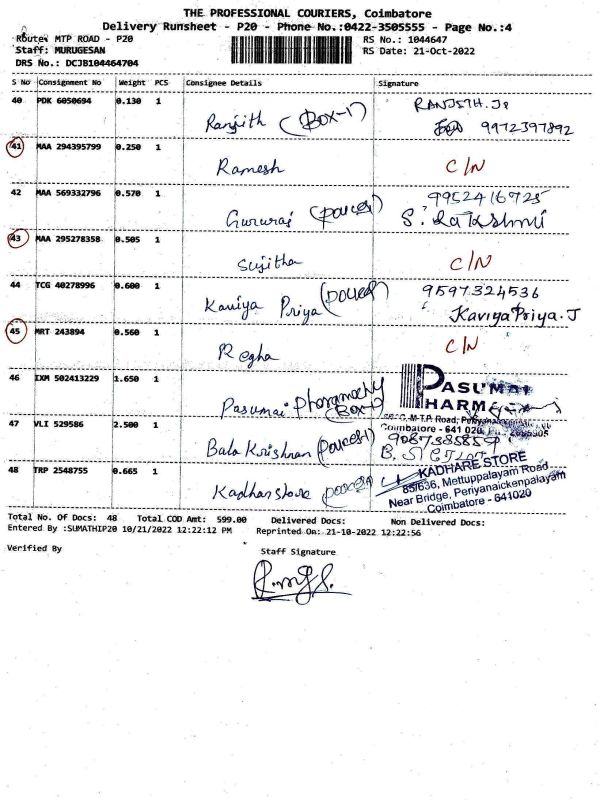 THE PROFESSIONAL COURIERS, Coimbatore
Delivery Runsheet - P20 - Phone No.:0422-3505555 - Page No.:4
Route: MTP ROAD - P20
RS No.: 1044647
Staff: MURUGESAN
RS Date: 21-Oct-2022
DRS No.: DCJB104464704
S No Consignment No Weight PCS Consignee Details Signature
40 PDK 6050694 0.130 1
Ranjith (Box-1)
RANJITH.J
9972397892
41 MAA 294395799 0.250 1
Ramesh C/N
42 MAA 569332796 0.570 1
Gururaj (parcel)
9952416725
43 MAA 295278358 0.505 1
Sujitha C/N
44 TCG 40278996 0.600 1
Kaviya Priya (parcel)
9597324536
Kaviya Priya. J
45 MRT 243894 0.560 1
Regha C/N
46 IXM 502413229 1.650 1
Pasumai Pharamachy (Box-1)
PASUMAI
PHARM
Coimbatore - 641 020
47 VLI 529586 2.500 1
Bala Krishnan (parcel)
48 TRP 2548755 0.665 1
Kadhar store (parcel)
KADHARE STORE
85/636, Mettuppalayam Road
Near Bridge, Periyanaickenpalayam
Coimbatore - 641020
Total No. Of Docs: 48 Total COD Amt: 599.00 Delivered Docs: Non Delivered Docs:
Entered By :SUMATHIP20 10/21/2022 12:22:12 PM Reprinted On: 21-10-2022 12:22:56
Verified By Staff Signature